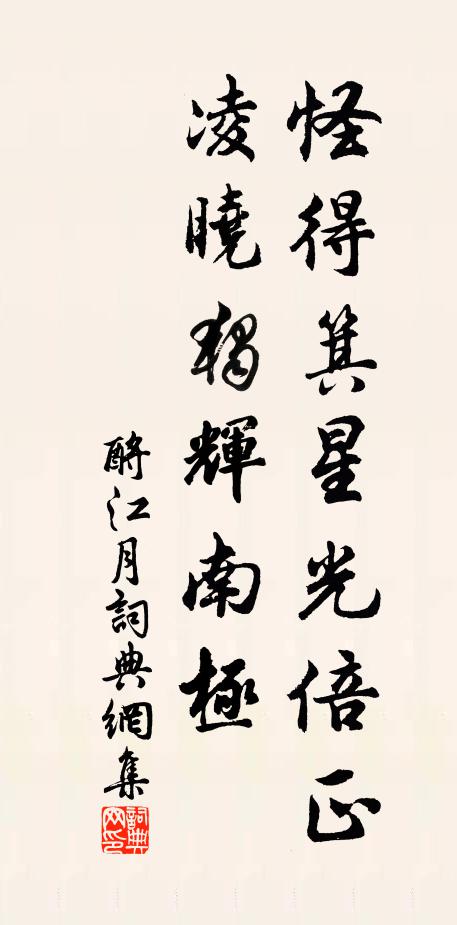 怪得箕星光倍正
凌曉獨輝南極
酹江月詞典網集
詞典網印